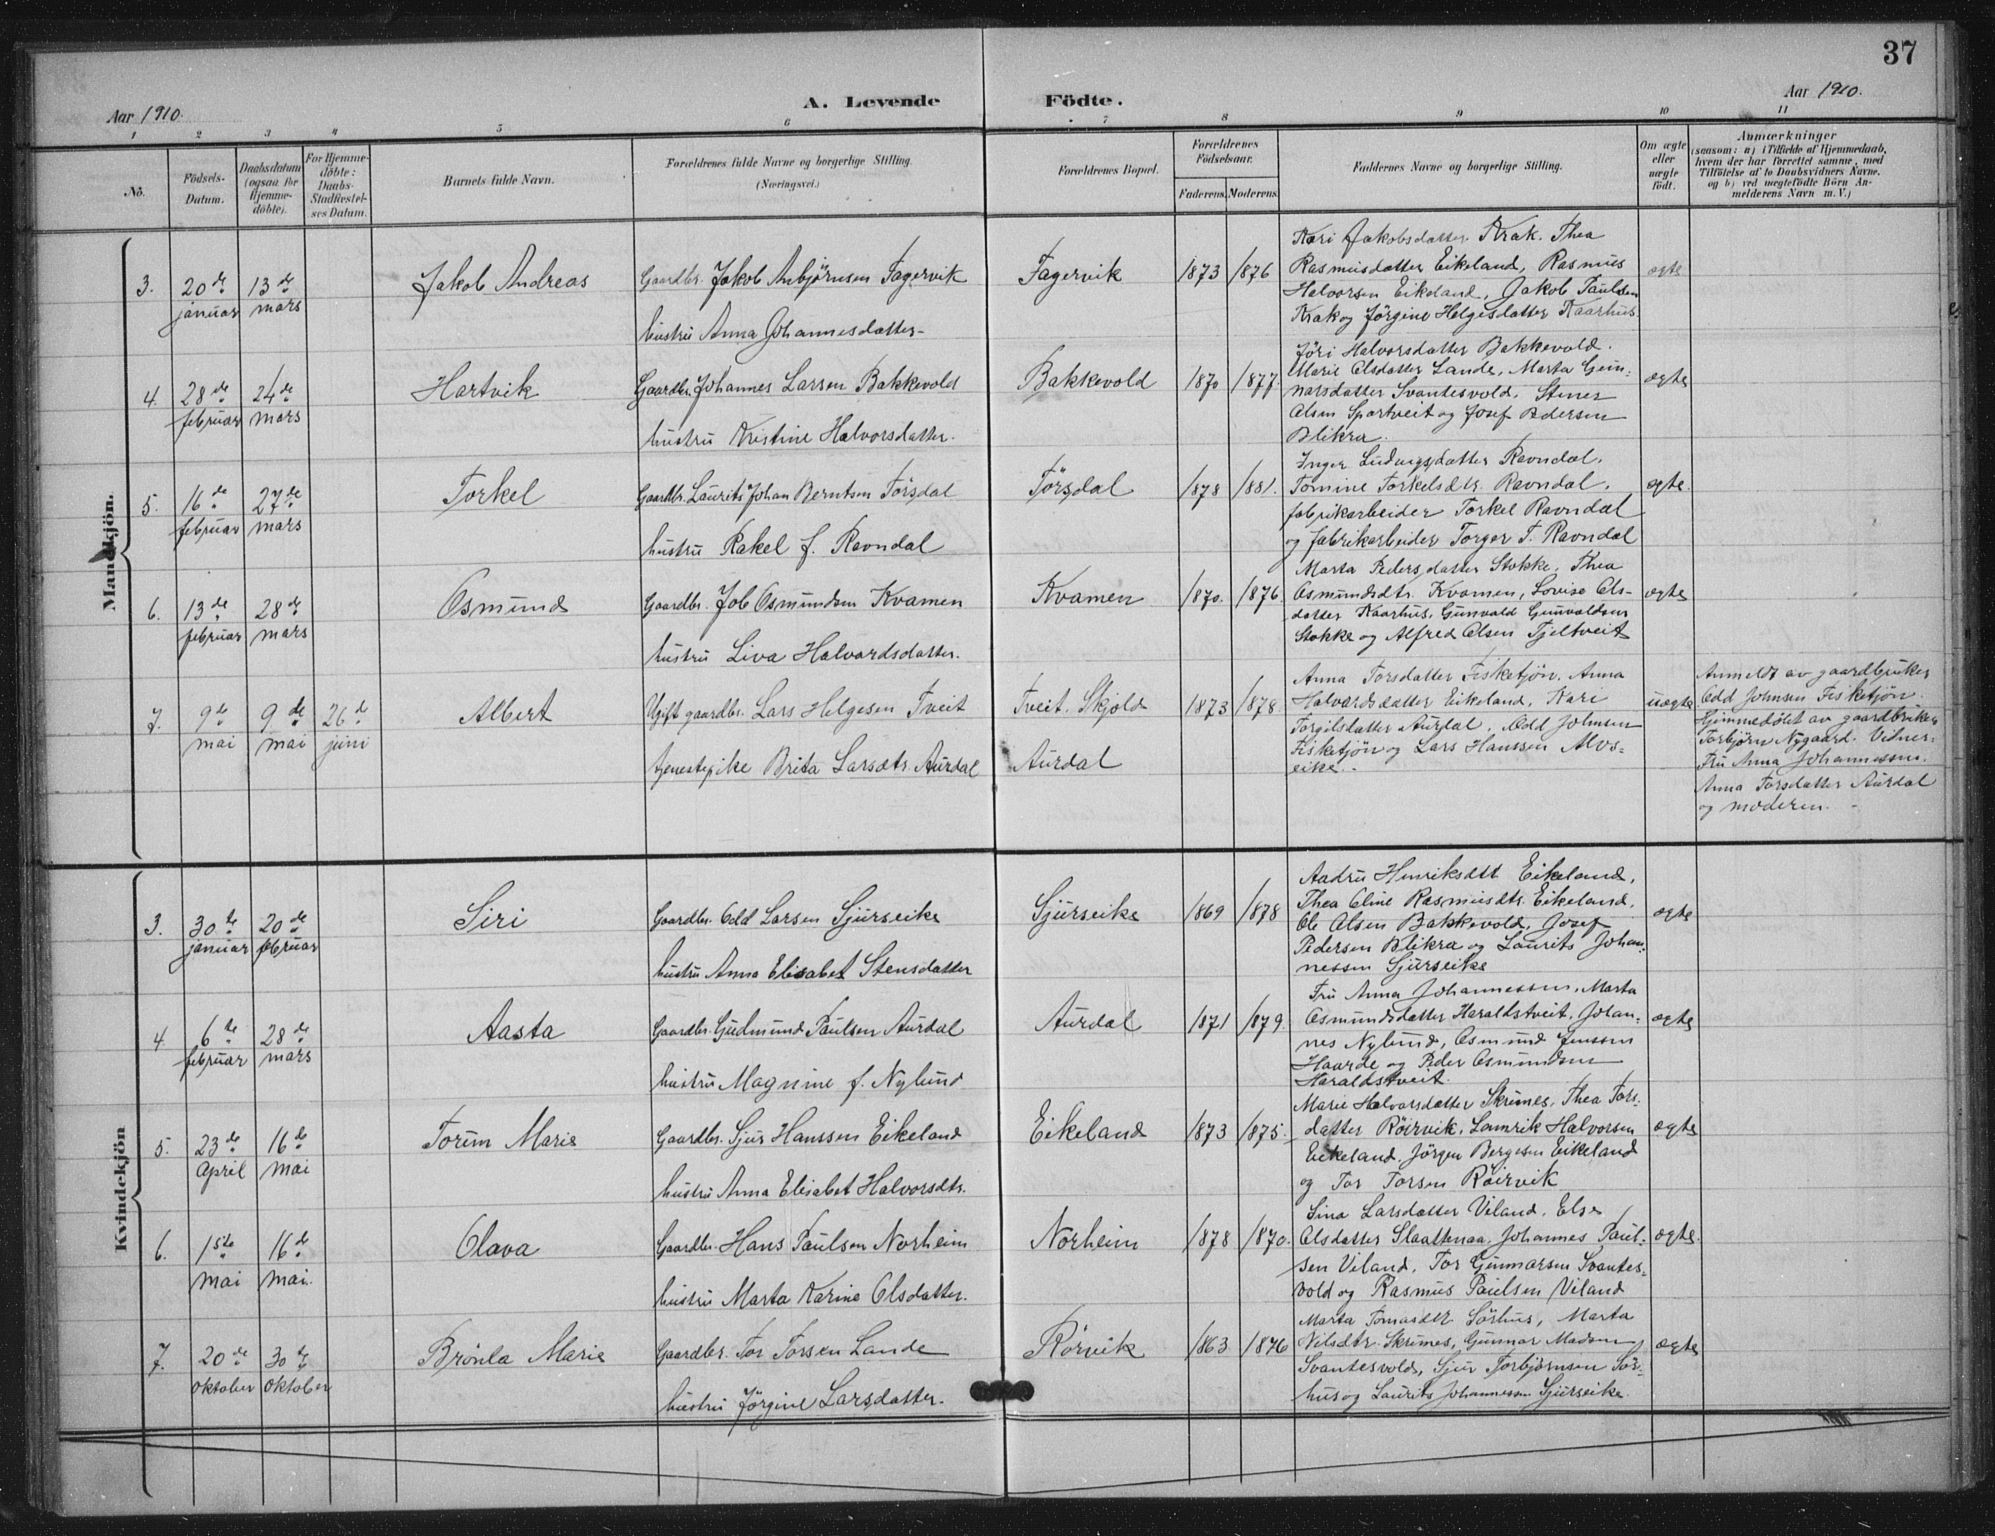 37
Aar 1910.
A. Levende Födte.
Aar 1910.
1 2 3 4 5 6 7 8 9 10 11
No.
Födsels-
Datum.
Daabsdatum
(ogsaa for
Hjemme-
döbte).
For Hjemme-
döbte:
Daabs-
Stadfæstel-
ses Datum.
Barnets fulde Navn.
Forældrenes fulde Navne og borgerlige Stilling.
(Næringsvei.)
Forældrenes Bopæl.
Forældrenes
Födselsaar.
Faderens. Moderens.
Faddernes Navne og borgerlige Stilling.
Om ægte
eller
uægte
födt.
Anmærkninger
(saasom: a) i Tilfælde af Hjemmedaab,
hvem der har forrettet samme, med
Tilföielse af to Daabsvidners Navne,
og b) ved uægtefödte Börn An-
melderens Navn m. V.)
Mandkjön.
3. 20de januar 13de mars
Jakob Andreas
Gaardbr. Jakob Anbjörnsen Fagervik
hustru Anna Johannesdatter
Fagervik
1873 1876
Kari Jakobsdatter Krak. Thea
Rasmusdatter Eikeland, Rasmus
Halvorsen Eikeland, Jakob Paulsen
Krak og Jörgine Helgesdatter Kaarhus
ægte
4. 28de februar 24de mars
Hartvik
Gaardbr. Johannes Larsen Bakkevold
hustru Kristine Halvorsdatter.
Bakkevold
1870 1877.
Jöri Halvorsdatter Bakkevold.
Marie Olsdatter Lande, Marta Gun-
narsdatter Svantesvold. Stener
Olsen Spartveit og Josef Pedersen
Blikra.
ægte
5. 16de februar 27de mars
Torkel
Gaardbr. Laurits Johan Berntsen Törsdal
hustru Rakel f. Ravndal
Törsdal
1878 1881.
Inger Ludvigsdatter Ravndal.
Tomine Torkelsdtr. Ravndal.
fabrikarbeider Torkel Ravndal
og fabrikarbeider Torger T. Ravndal
ægte.
6. 13de februar 28de mars
Osmund
Gaardbr. Job Osmundsen Kvamen
hustru Liva Halvardsdatter.
Kvamen
1870. 1876.
Marta Pedersdatter Stokke. Thea
Osmundsdtr. Kvamen, Lovise Ols-
datter Kaarhus, Gunvald Gunvaldsen
Stokke og Alfred Olsen Fjeltveit
ægte
7. 9de mai 9de mai 26de juni
Albert
Ugift gaardbr. Lars Helgesen Tveit
tjenestepike Brita Larsdtr. Aurdal
Tveit. Skjold
Aurdal
1873 1878.
Anna Torsdatter Fisketjön. Anna
Halvardsdatter Eikeland, Kari
Torgilsdatter Aurdal, Odd Johnsen
Fisketjön og Lars Hanssen Alvs-
eike.
uægte
Anmeldt av gaardbruker
Odd Johnsen Fisketjön.
Hjemmedöbt av gaardbruker
Torbjörn Nygaard. Vidner:
Fru Anna Johannessen.
Anna Torsdatter Aurdal
og moderen.
Kvindekjön
3. 30te januar 20de februar
Siri
Gaardbr. Odd Larsen Sjurseike
hustru Anna Elisabet Stensdatter
Sjurseike
1869 1878
Aadru Henriksdtt Eikeland,
Thea Oline Rasmusdtr. Eikeland.
Ole Olsen Bakkevold, Josef
Pedersen Blikra og Laurits Johan-
nessen Sjurseike
ægte
4. 6te februar 28de mars
Aasta
Gaardbr. Gudmund Paulsen Aurdal
hustru Magnine f. Nylund
Aurdal
1871 1879.
Fru Anna Johannessen, Marta
Osmundsdatter Haraldstveit, Johan-
nes Nylund, Osmund Jenssen
Haarde og Peder Osmundsen
Haraldstveit.
ægte
5. 23de April 16de mai
Torun Marie
Gaardbr. Sjur Hanssen Eikeland
hustru Anna Elisabet Halvorsdtr.
Eikeland
1873 1875.
Marie Halvorsdatter Skrunes, Thea Tors-
datter Röirvik, Lamrik Halvorsen
Eikeland. Jörgen Bergesen Eikeland
og Tor Torsen Röirvik
ægte
6. 1ste mai 16de mai.
Olava
Gaardbr. Hans Paulsen Norheim
hustru Marta Karine Olsdatter.
Norheim
1878 1870.
Sina Larsdatter Viland. Else
Olsdatter Slaattenaa. Johannes Paul-
sen Viland. Tor Gunnarsen Svantes-
vold og Rasmus Paulsen Viland
ægte.
7. 20de oktober 30te oktober
Brönla Marie
Gaardbr. Tor Torsen Lande
hustru Jörgine Larsdatter.
Rörvik
1863 1876
Marta Tomasdtr Sörhus, Marta
Nilsdtr. Skrunes, Gunnar Madsen
Svantesvold, Sjur Torbjörnsen Sör-
hus og Laurits Johannessen Sjurseike.
ægte